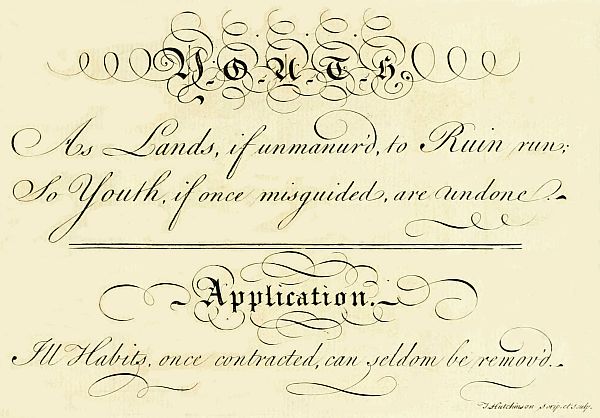 Y.O.U.T.H.
As Lands, if unmanur'd, to Ruin run;
So Youth, if once misguided, are undone.
Application.
Ill Habits, once contracted, can seldom be remov'd.
J. Hutchinson scrip. et sculp.